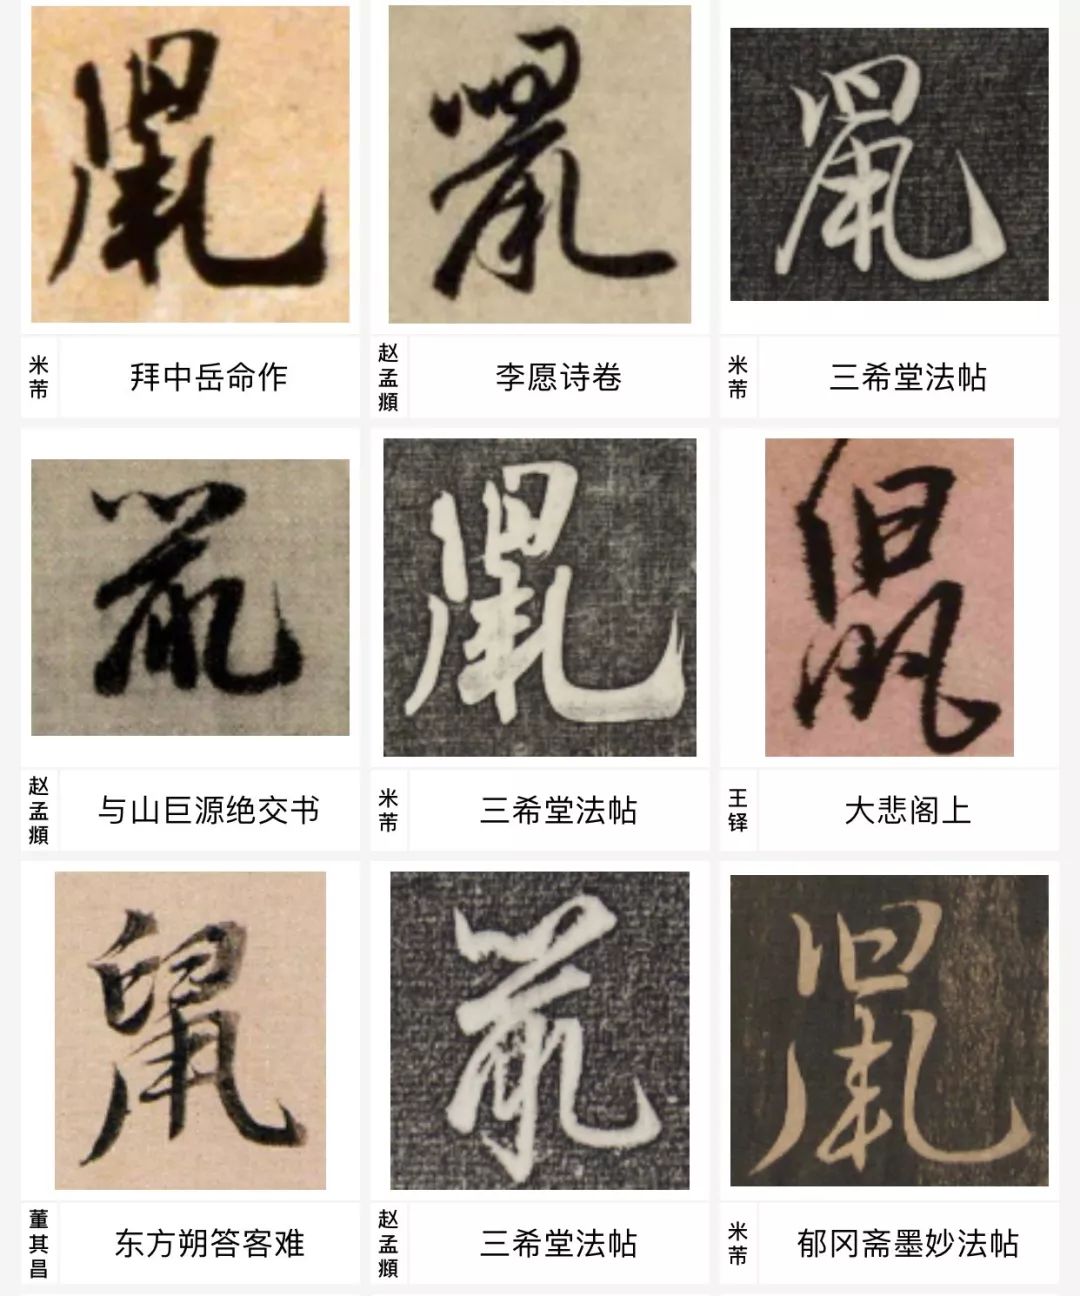 鼠
米芾
拜中岳命作
鼠
赵孟頫
李愿诗卷
鼠
米芾
三希堂法帖
鼠
赵孟頫
与山巨源绝交书
鼠
米芾
三希堂法帖
鼠
王铎
大悲阁上
鼠
董其昌
东方朔答客难
鼠
赵孟頫
三希堂法帖
鼠
米芾
郁冈斋墨妙法帖